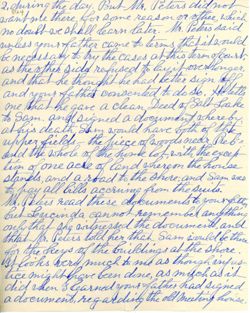 2, during the day. But Mr. Peters did not
want me there, for some reason or other, which
no doubt we shall learn later. Mr. Peters said
unless your father came to terms that it would
be necessary to try the cases at this term of court,
as the other side refused to wait any longer,
and that he thought he had better sign
and your father consented to do so. He tells
me that he gave a clean Deed of Salt Lake
to Sam, and signed a document whereby,
at his death, Sam would have both of the
upper fields - the piece of woods near
and the whole of the point of
of one acre of land where the house
stands, and a road to the shore, and Sam was
to pay all bills accruing from the suits.
Mr. Peters read these documents to your father,
but Lucinda cannot remember anything
only that she witnessed the documents, and
that Mr. Peters told her that Sam would be there
for the keys of the buildings at the shore.
It looks very much to me as though injus-
tice might have been done, as much as it
did when I learned your father had signed
a document, regarding the old meeting house,